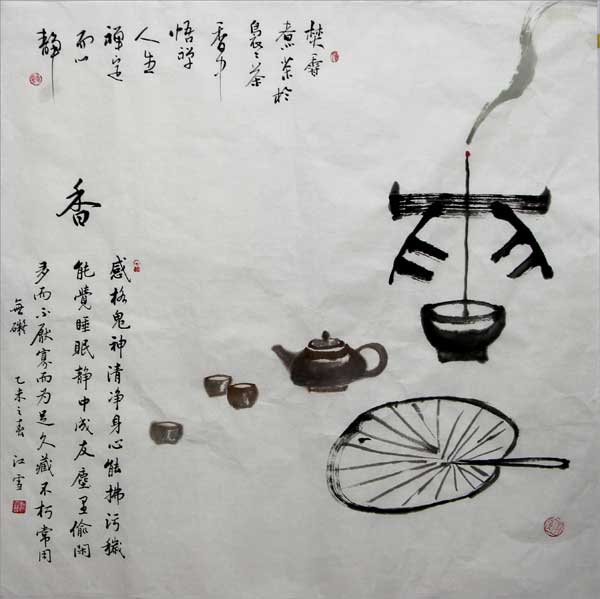 焚
煮茶於
袅々茶
香中
悟禅
人生
禅定
而心
静
香
感格鬼神清净身心能拂污穢
能覺睡眠静中成友塵里偷闲
多而不厭寡而为足久藏不朽常用
無礙 乙未之春 江雪